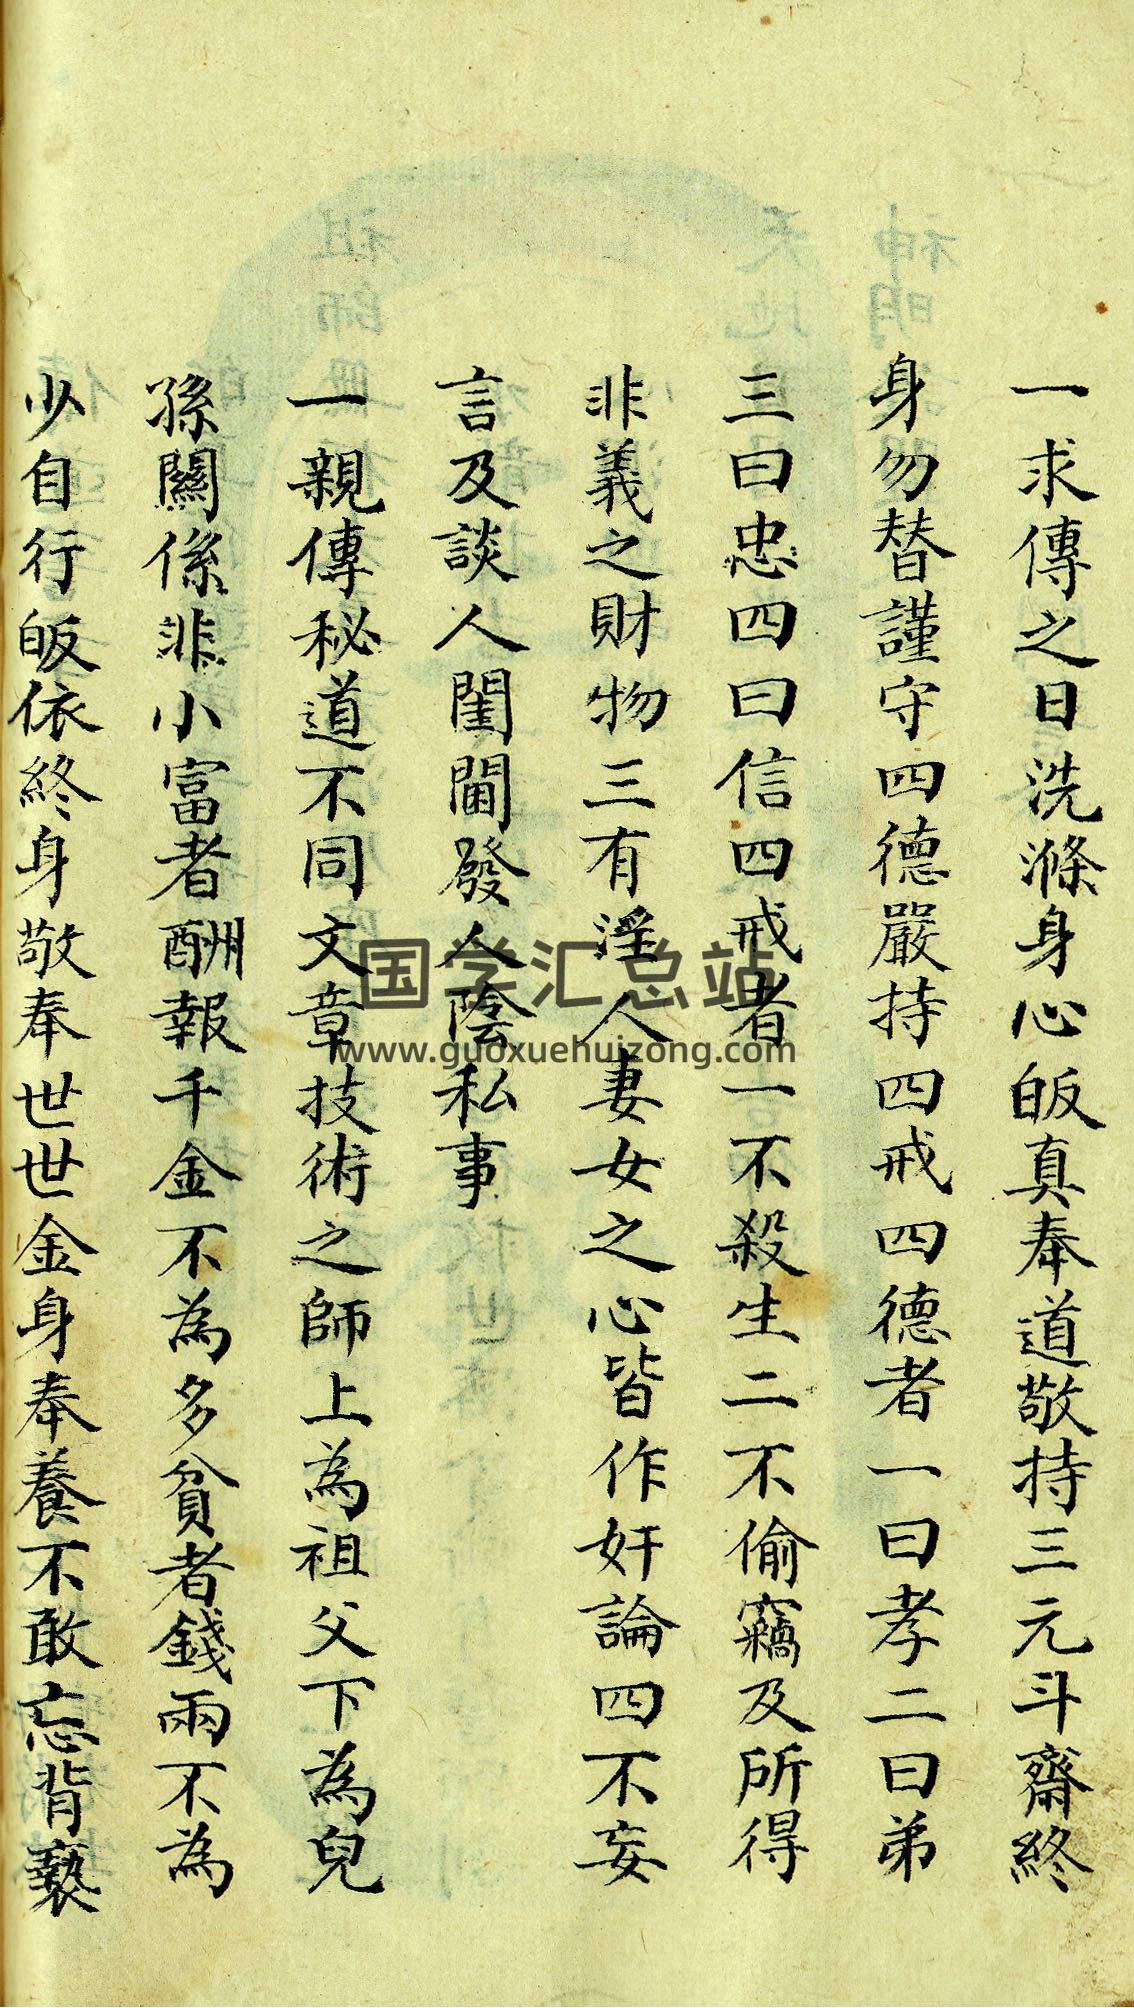 一求傳之日洗滌身心皈真奉道敬持三元斗齋終
身勿替謹守四德嚴持四戒四德者一曰孝二曰弟
三曰忠四曰信四戒者一不殺生二不偷竊及所得
非義之財物三有淫人妻女之心皆作奸論四不妄
言及談人閨閫發人陰私事
一親傳秘道不同文章技術之師上為祖父下為兒
孫關係非小富者酬報千金不為多貧者錢兩不為
少自行皈依終身敬奉世世金身奉養不敢忘背褻
国学汇总站
www.guoxuehuizong.com